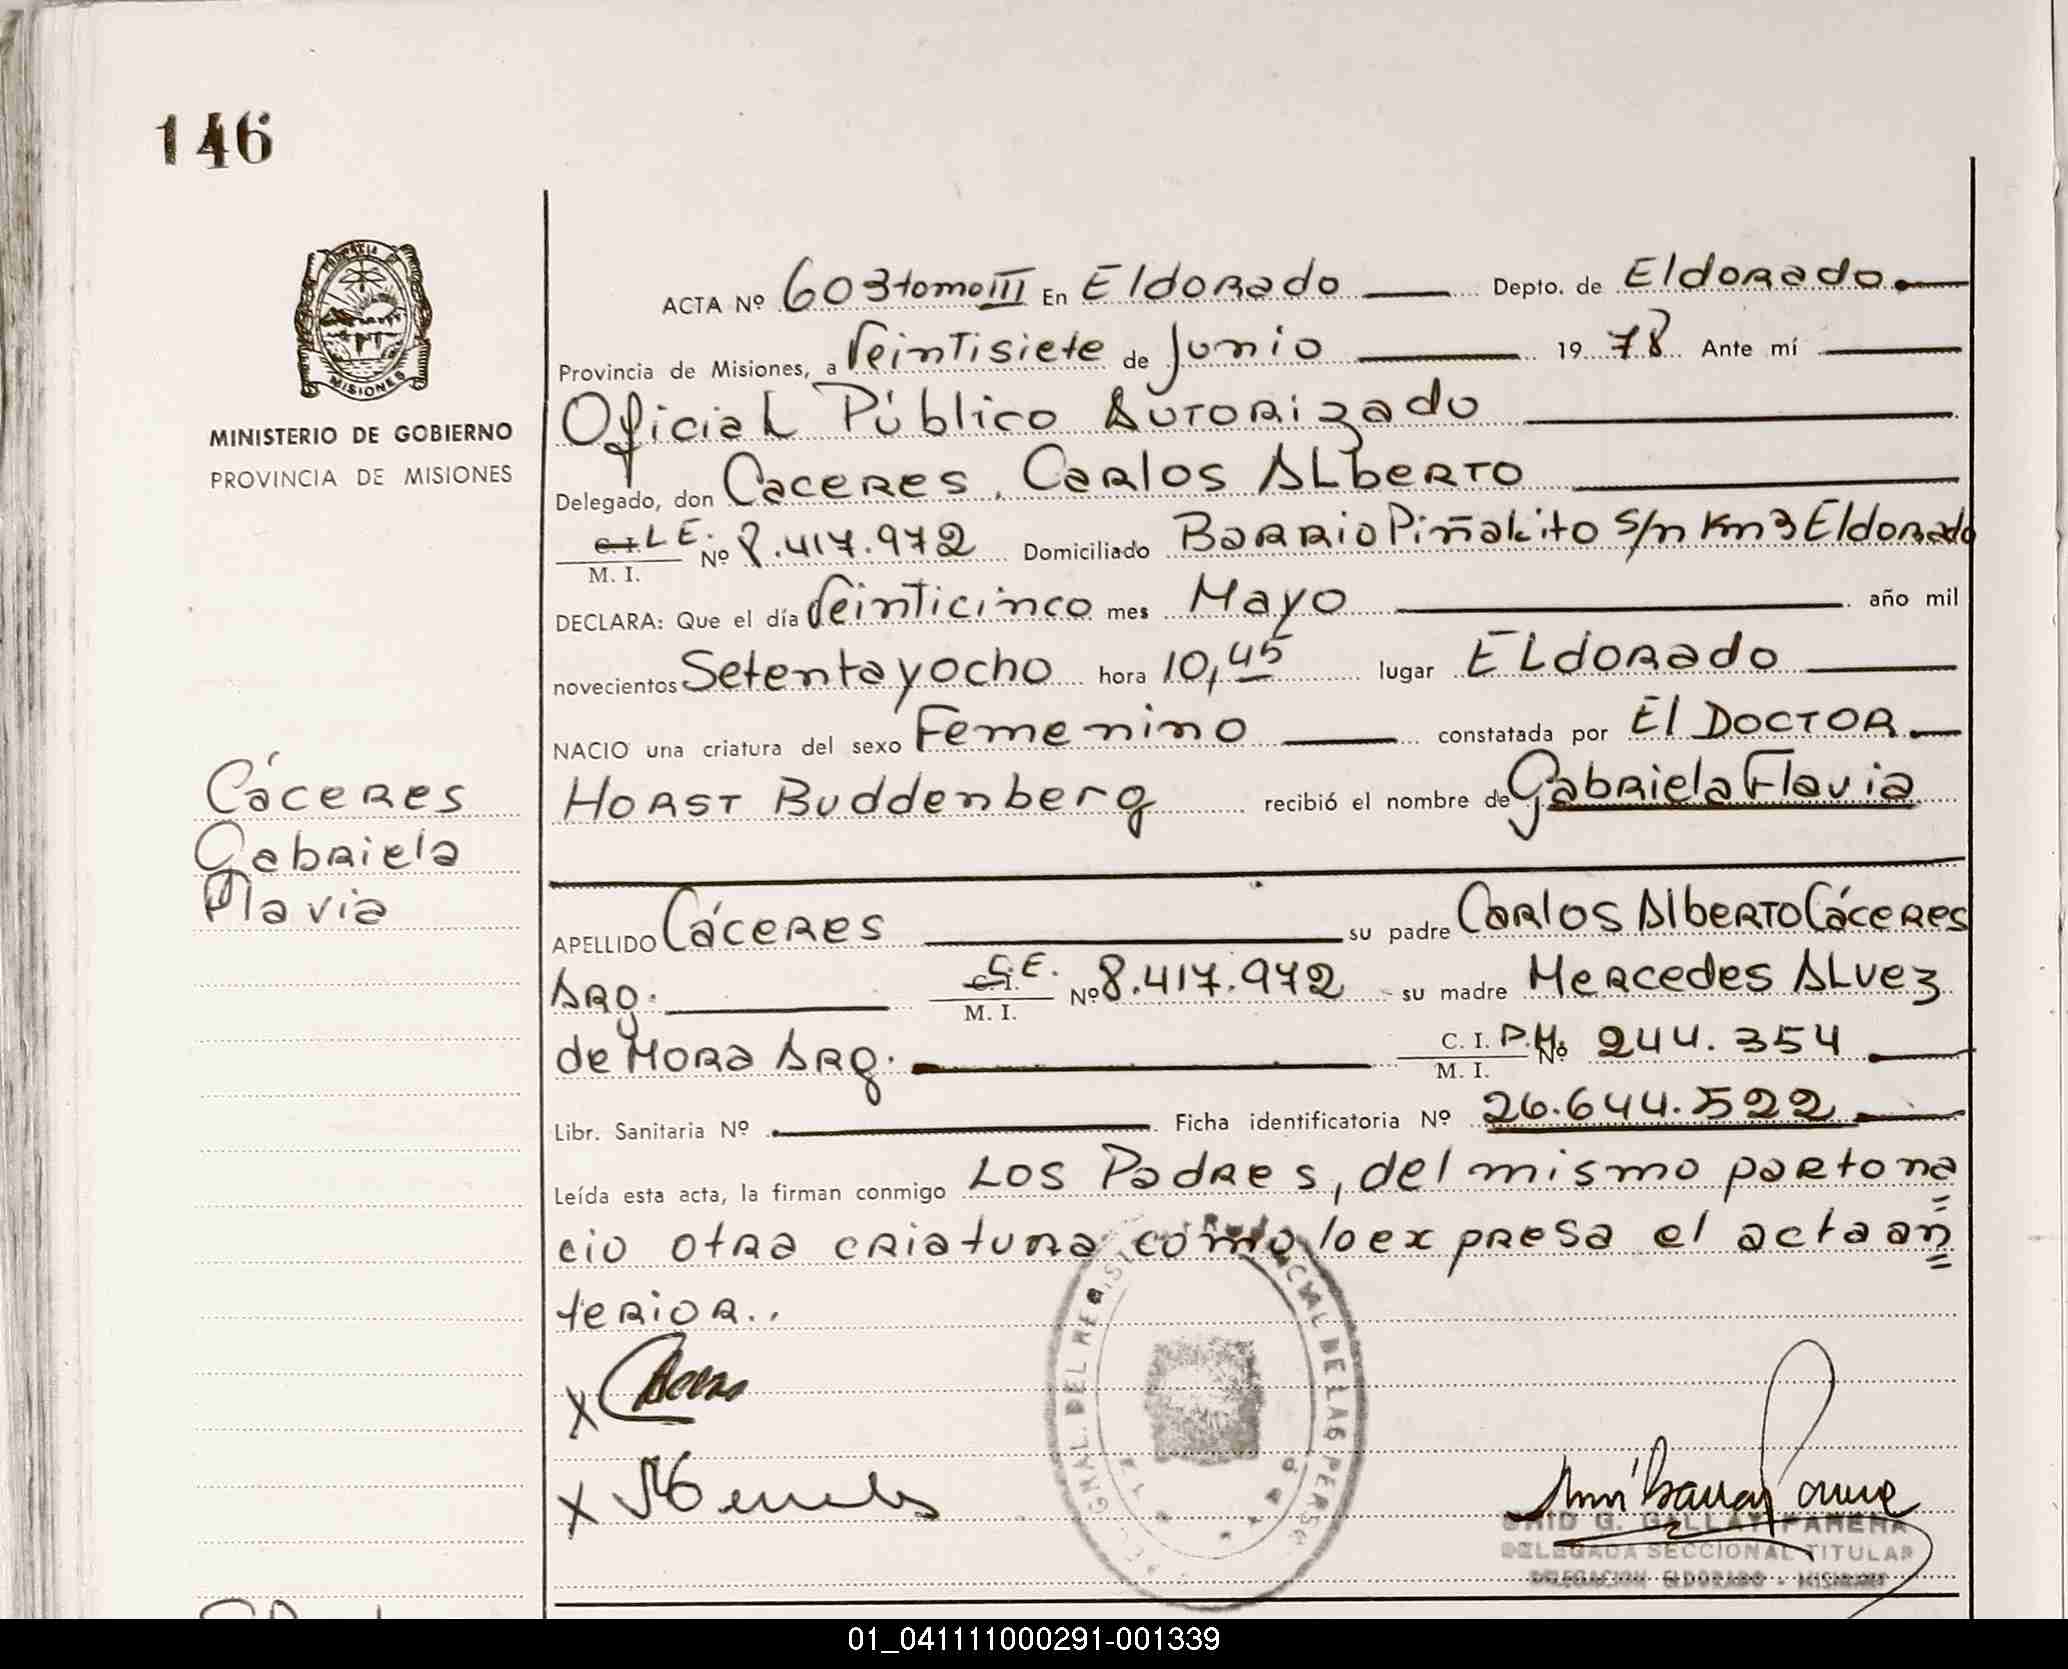 146
MISIONES
MINISTERIO DE GOBIERNO
PROVINCIA DE MISIONES
Cáceres
Gabriela
Flavia
ACTA Nº 603 tomo III En Eldorado Depto. de Eldorado
Provincia de Misiones, a Veintisiete de Junio 19 78 Ante mí
Oficial Público Autorizado
Delegado, don Caceres, Carlos Alberto
C.I. L E. Nº 8.417.972 Domiciliado Barrio Piñalito s/n Km 3 Eldorado
M. I.
DECLARA: Que el día Veinticinco mes Mayo año mil
novecientos Setenta y ocho hora 10,45 lugar ELdorado
NACIO una criatura del sexo Femenino constatada por El Doctor
Horst Buddenberg recibió el nombre de Gabriela Flavia
APELLIDO Cáceres su padre Carlos Alberto Cáceres
Arg. E. Nº 8.417.972 su madre Mercedes Alvez
M. I.
de Mora Arg. C. I. Nº 244.354
M. I.
Libr. Sanitaria Nº Ficha identificatoria Nº 26.644.522
Leída esta acta, la firman conmigo Los Padres, del mismo parto na
cio otra criatura como lo expresa el acta an
terior..
X Caceres
X
G. GALLAY PARERA
DELEGADA SECCIONAL TITULAR
DELEGACION ELDORADO - MISIONES
01_041111000291-001339